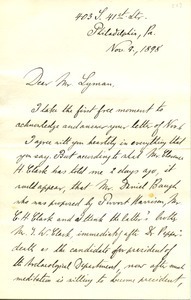 403 S. 41st St.
Philadelphia, Pa.
Nov 9, 1898
Dear Mr. Lyman,
I take the first free moment to
acknowledge and answer your letter of Nov 6
I agree with you heartily in everything that
you say. But according to what Mr. Clarence
H Clark has told me 2 days ago, it
would appear, that Mr. Daniel Baugh
who was proposed by Provost Harrison, Mr.
C. H Clark and I think the latter's brother
Mr. E. W. Clark, immediately after Dr Pepper's
death as the candidate for president of
the Archaeological Department, now after much
meditation is willing to become president,